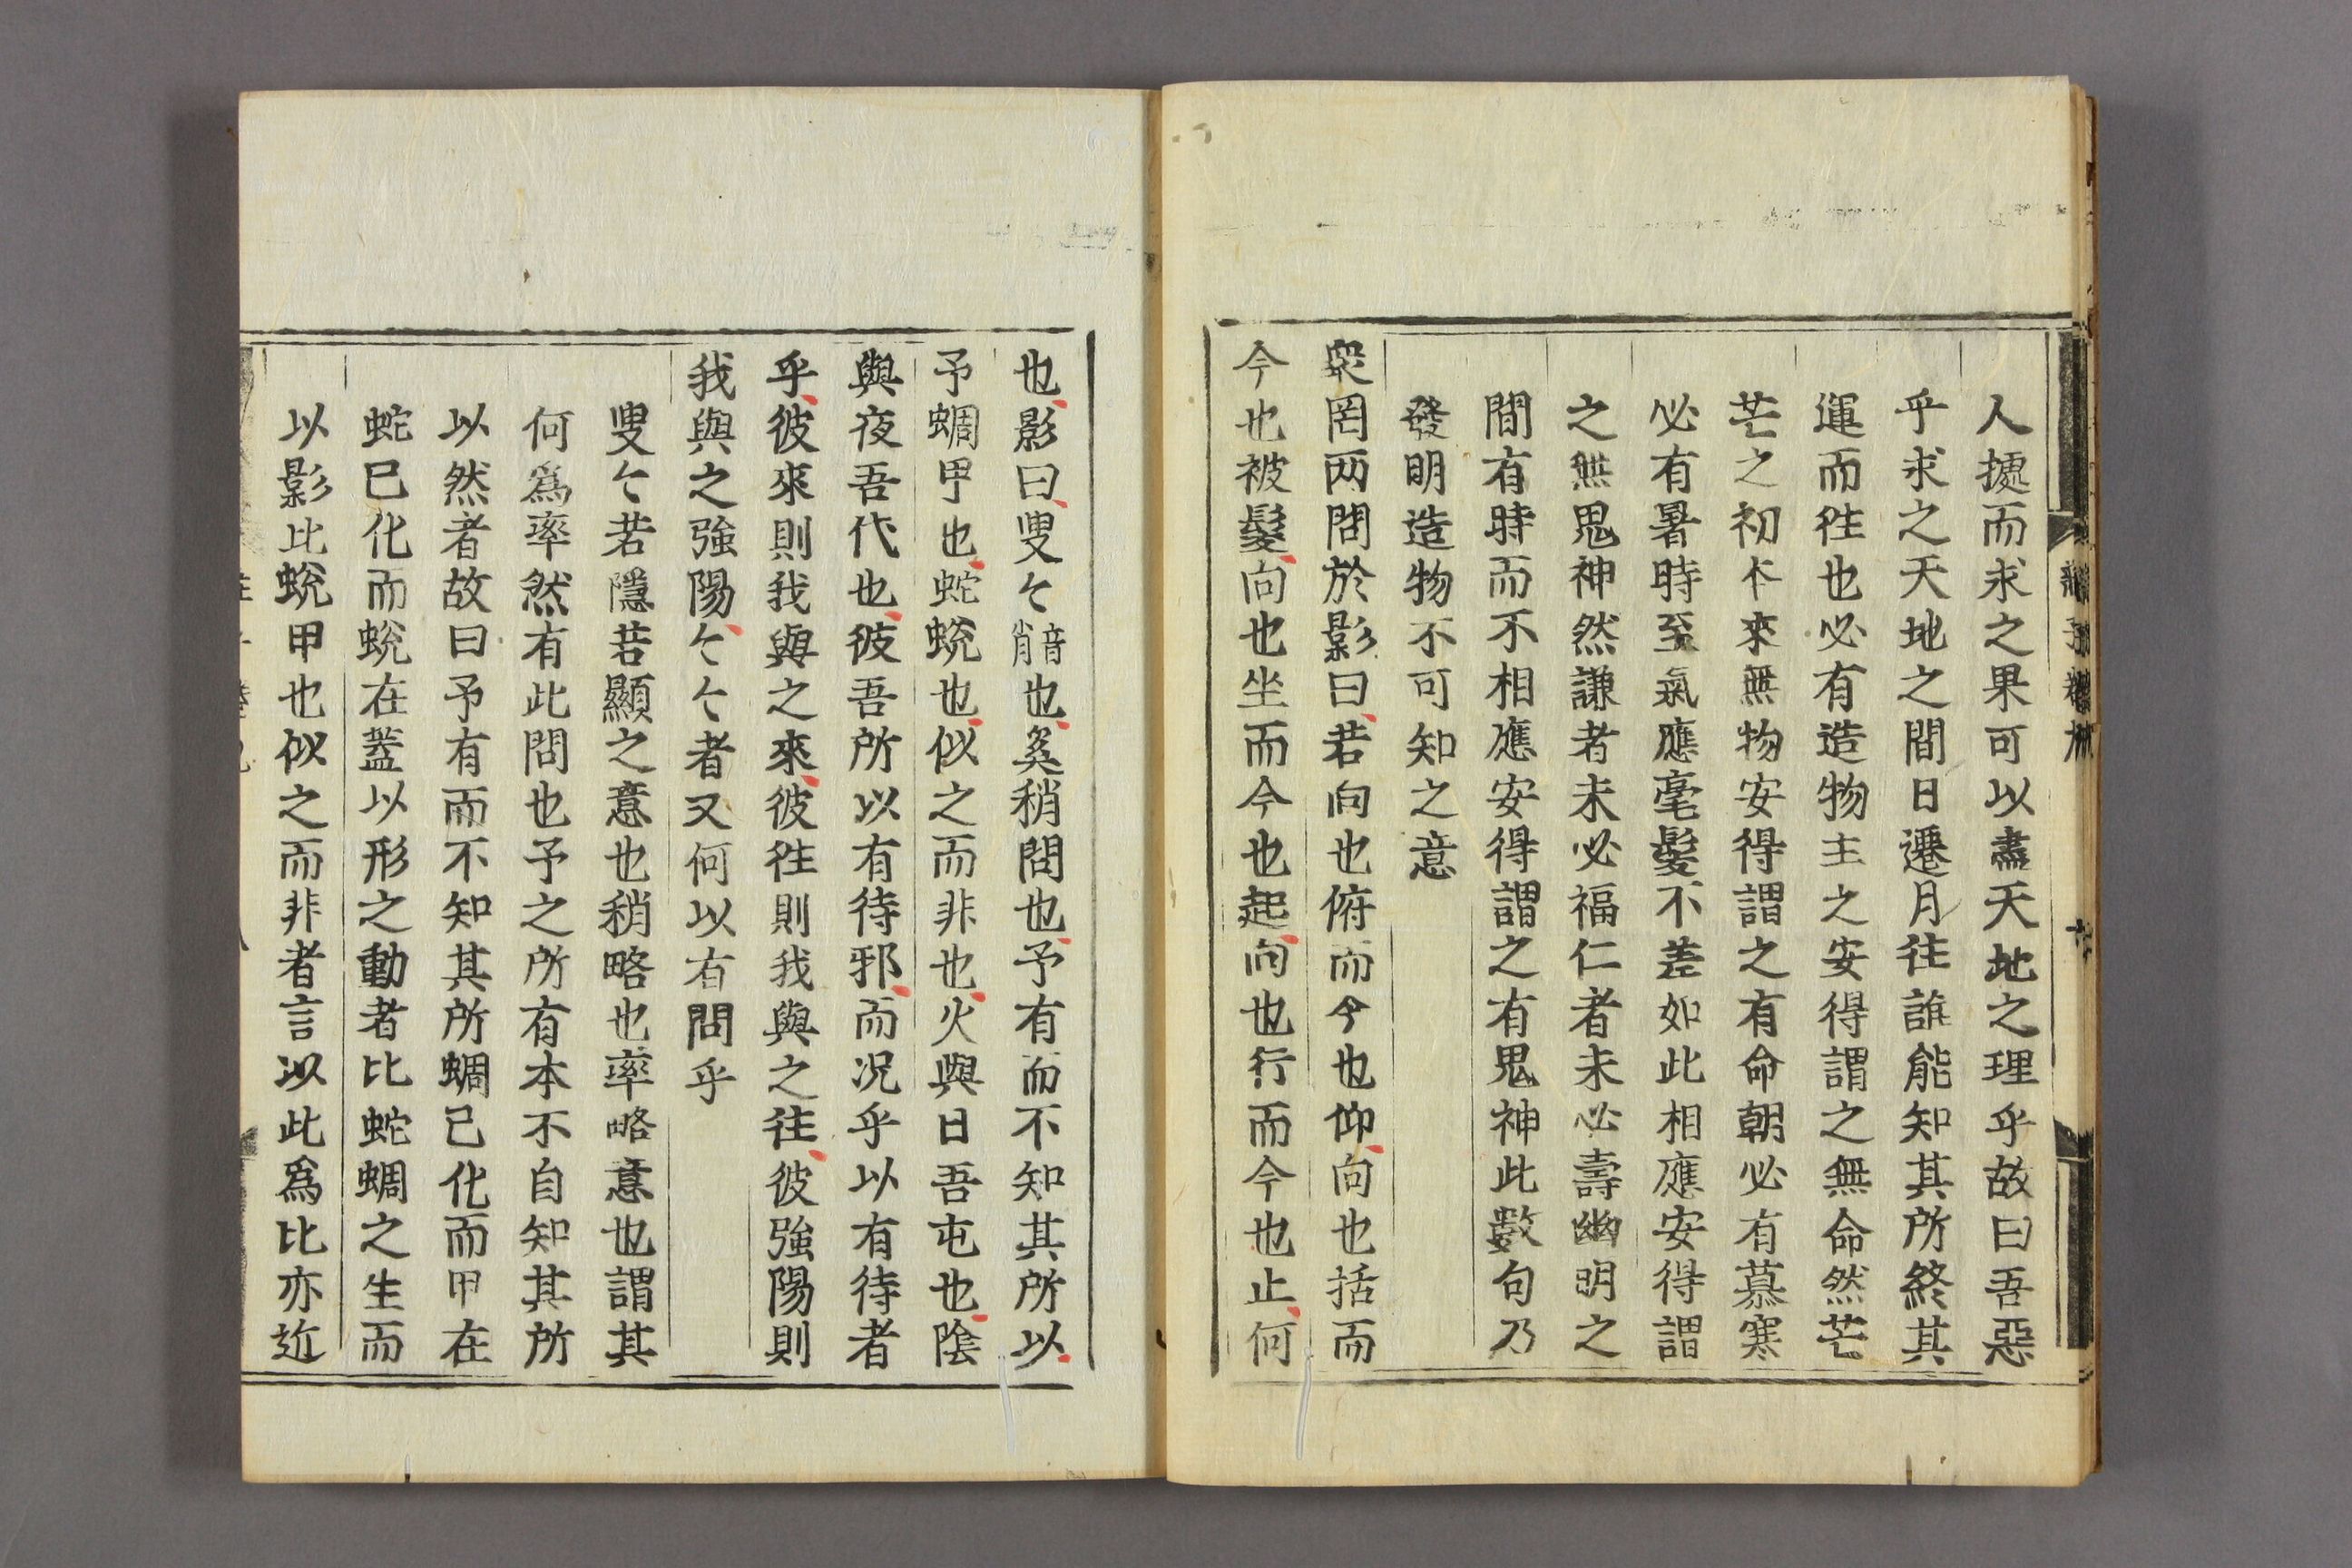 人㨿而求之果可以盡天地之理乎故曰吾惡
乎求之天天地之間日遷月往誰能知其所終其
運而徃也必有造物主之安得謂之無命然芒
芒之初本來無物安得謂之有命朝必有慕寒
必有暑時至氣應毫髮不差如此相應安得謂
之無鬼神然謙者未必福仁者未必壽幽明之
間有時而不相應安得謂之有鬼神此數句乃
發明造物不可知之意
衆罔两問於影曰若向也俯而今也仰向也括而
今也被髮向也坐而今也起向也行而今也止何
也影曰叟〻音肖也奚稍問也予有而不知其所以
予蜩甲也蛇蛻也似之而非也火與日吾屯也陰
與夜吾代也彼吾所以有待邪而况乎以有待者
乎彼來則我與之來彼徃則我與之往彼強陽則
我與之強陽〻〻者又何以有問乎
叟〻若隱若顯之意也稍略也率略意也謂其
何爲率然有此問也予之所有本不自知其所
以然者故曰予有而不知其所蜩已化而甲在
蛇已化而蛻在蓋以形之動者比蛇蜩之生而
以影比蛻甲也似之而非者言以此爲比亦近